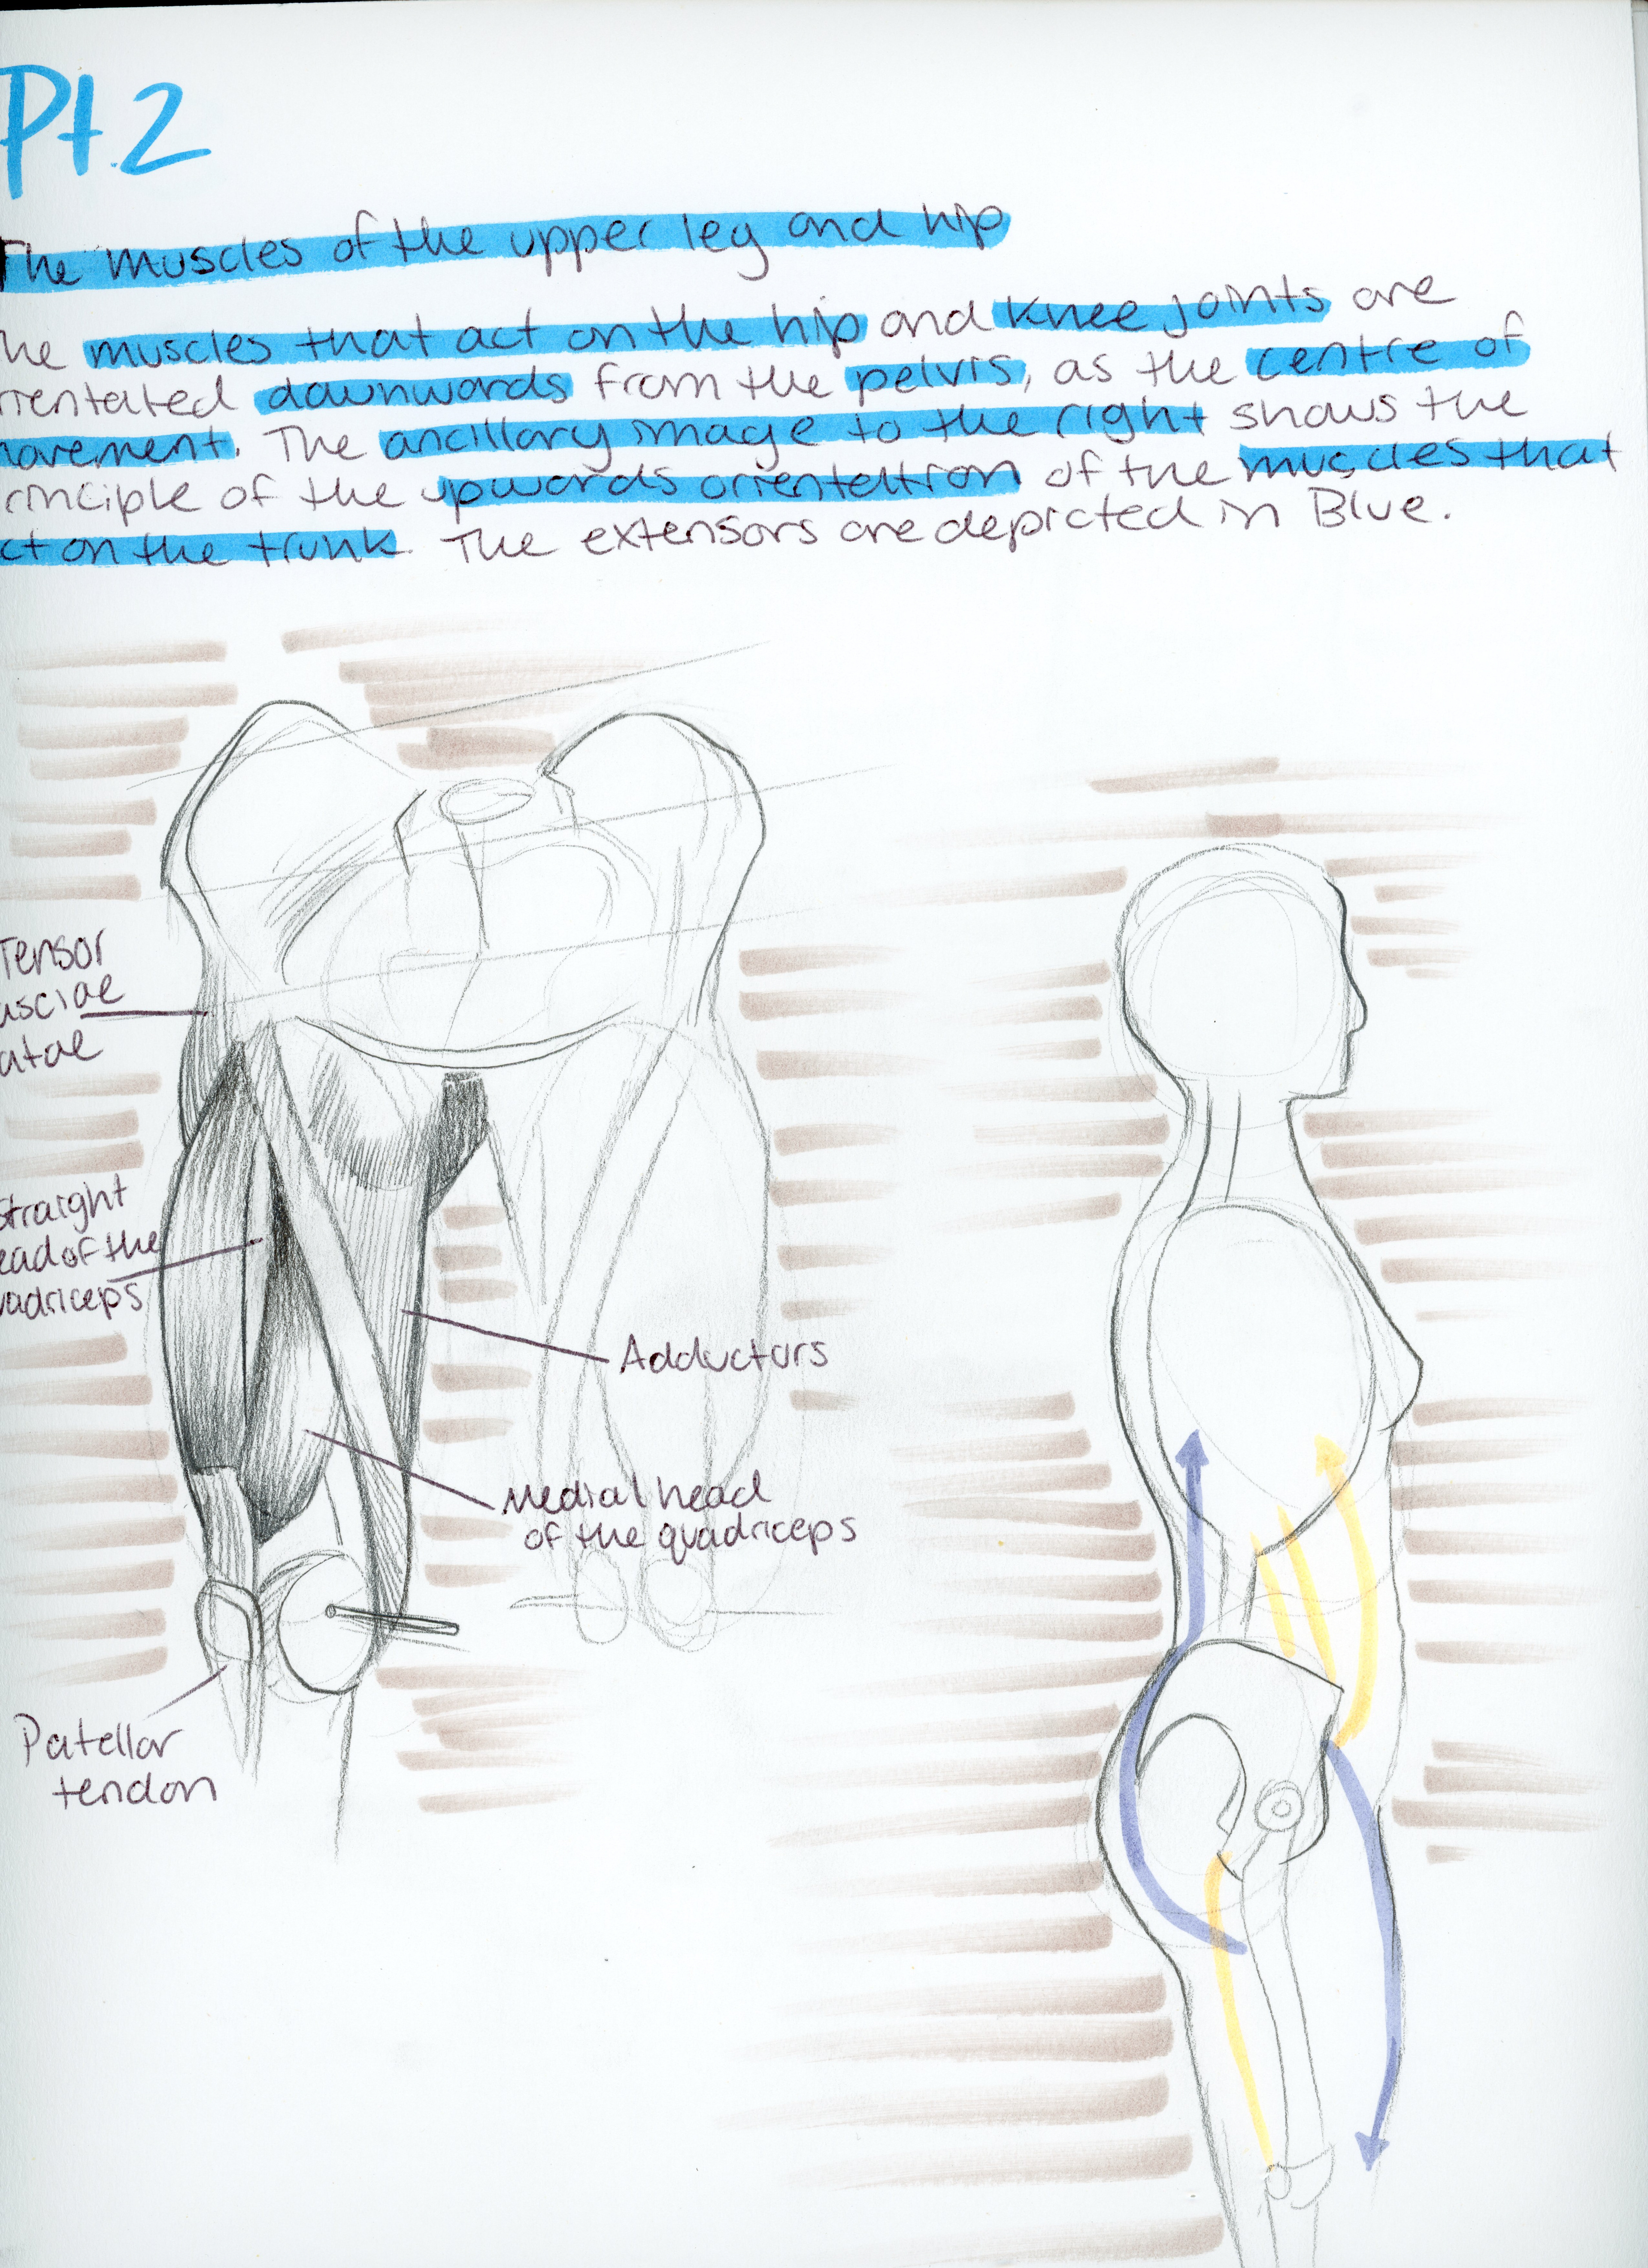 Pt.2
The muscles of the upper leg and hip
he muscles that act on the hip and knee joints are
rientated downwards from the pelvis, as the centre of
ovement. The ancillary image to the right shows the
rinciple of the upwards orientation of the muscles that
ct on the trunk. The extensors are depicted in Blue.
Tensor
asciae
atae
Straight
ead of the
uadriceps
Adductors
Medial head
of the quadriceps
Patellar
tendon